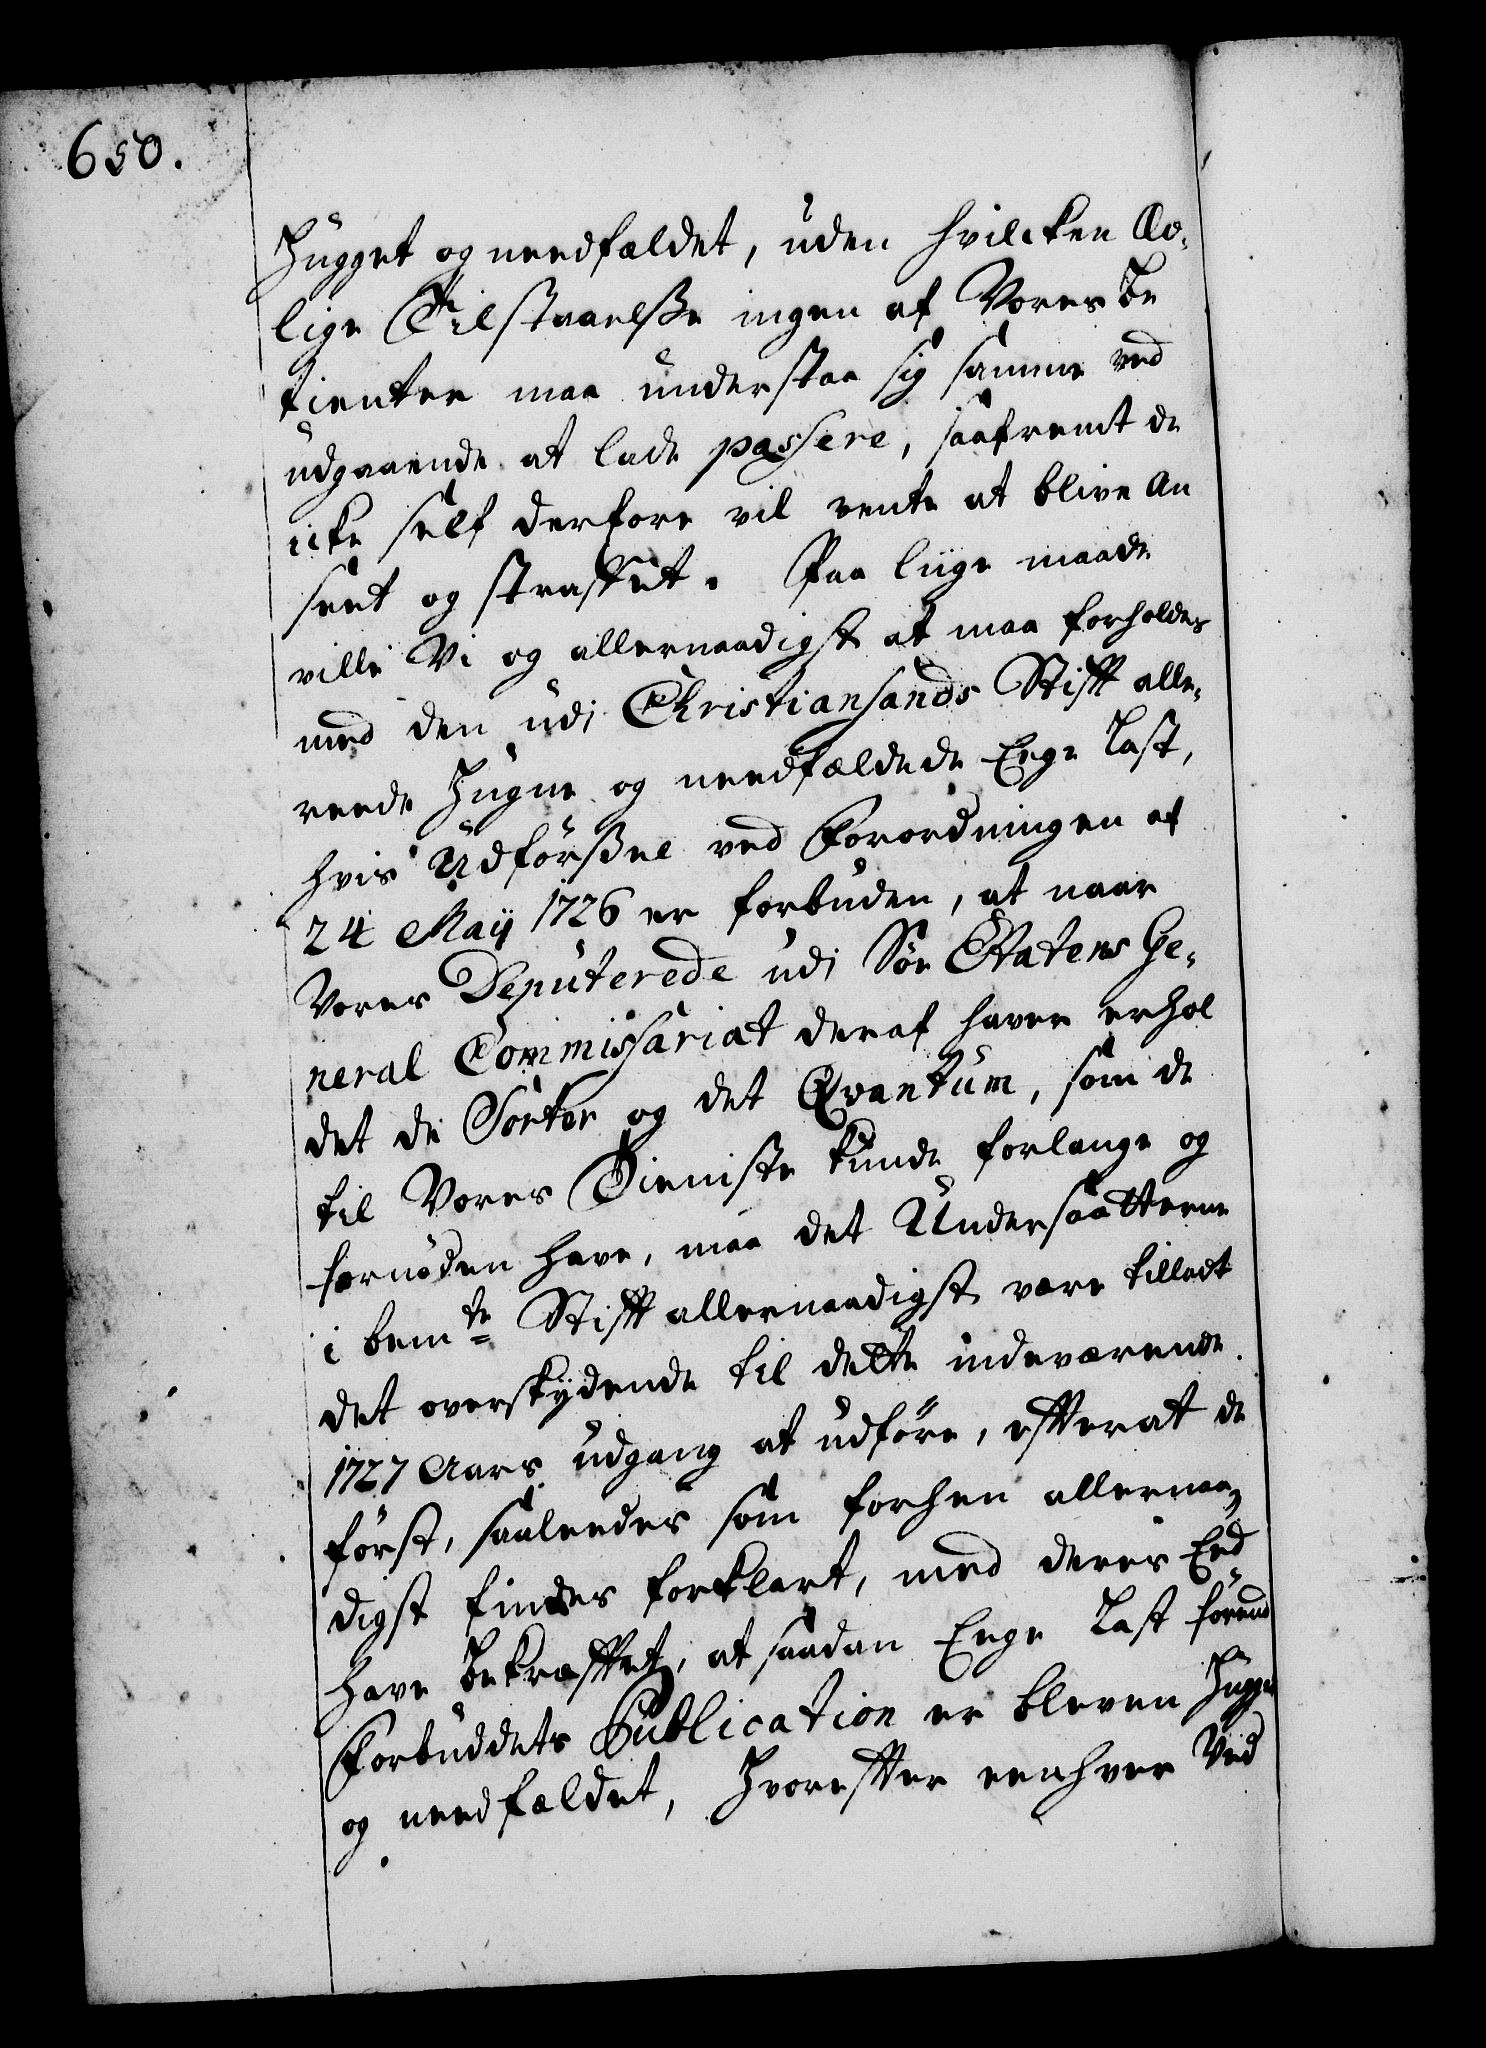 650.
Hugget og needfældet, uden hvilcken Æd-
lige Tilstaaelsse ingen af Vores Be
tientere maa understaa sig samme ved
udgaaende at lade passere, saafremt de
icke self derfore vil vente at blive an
seet og straffet. Paa liige maade
ville Vi og allernaadigst at maa forholdes
med den udi Christiansands Stifft alle-
reede Hugne og needfældede Eege Last,
hvis Udførssel ved Forordningen af
24 Maij 1726 er forbuden, at naar
Vores Deputerede udi Søe Etatens Ge-
neral Commissariat deraf haver erhol
det de Sorter og det Qvantum, som de
til Vores Tieniste kunde forlange og
fornøden have, maa det Undersaatterne
i bemte Stifft allernaadigst være tilladt
det overskydende til dette indeværende
1727 Aars udgang at udføre, efterat de
først, saaleedes som forhen allernaa-
digst findes forklaret, med deres Eed
have bekræfftet, at saadan Eege Last forend
Forbuddets Publication er bleven Hugget
og needfældet, Hvorefter eenhver Ved